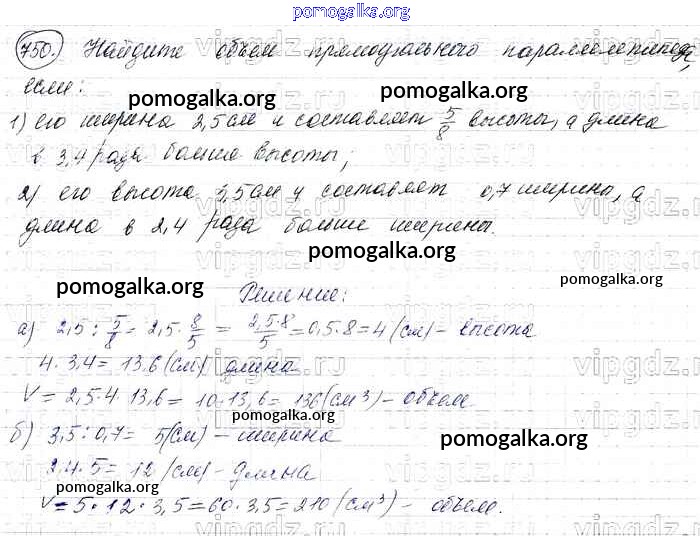 pomogalka.org
750. Найдите объем прямоугольного параллелепипеда,
если:
pomogalka.org pomogalka.org
1) его ширина 2,5 см и составляет 5/8 высоты, а длина
в 3,4 раза больше высоты;
2) его высота 3,5 см и составляет 0,7 ширины, а
длина в 2,4 раза больше ширины.
pomogalka.org
pomogalka.org
Решение:
pomogalka.org
а) 2,5 : 5/8 = 2,5 · 8/5 = 2,5·8/5 = 0,5·8 = 4 (см) – высота
4 · 3,4 = 13,6 (см) длина
V = 2,5·4·13,6 = 10·13,6 = 136 (см³) – объем
pomogalka.org
б) 3,5 : 0,7 = 5 (см) – ширина
pomogalka.org
2,4·5 = 12 (см) – длина
pomogalka.org
V = 5·12·3,5 = 60·3,5 = 210 (см³) – объем.
vipgdz.ru